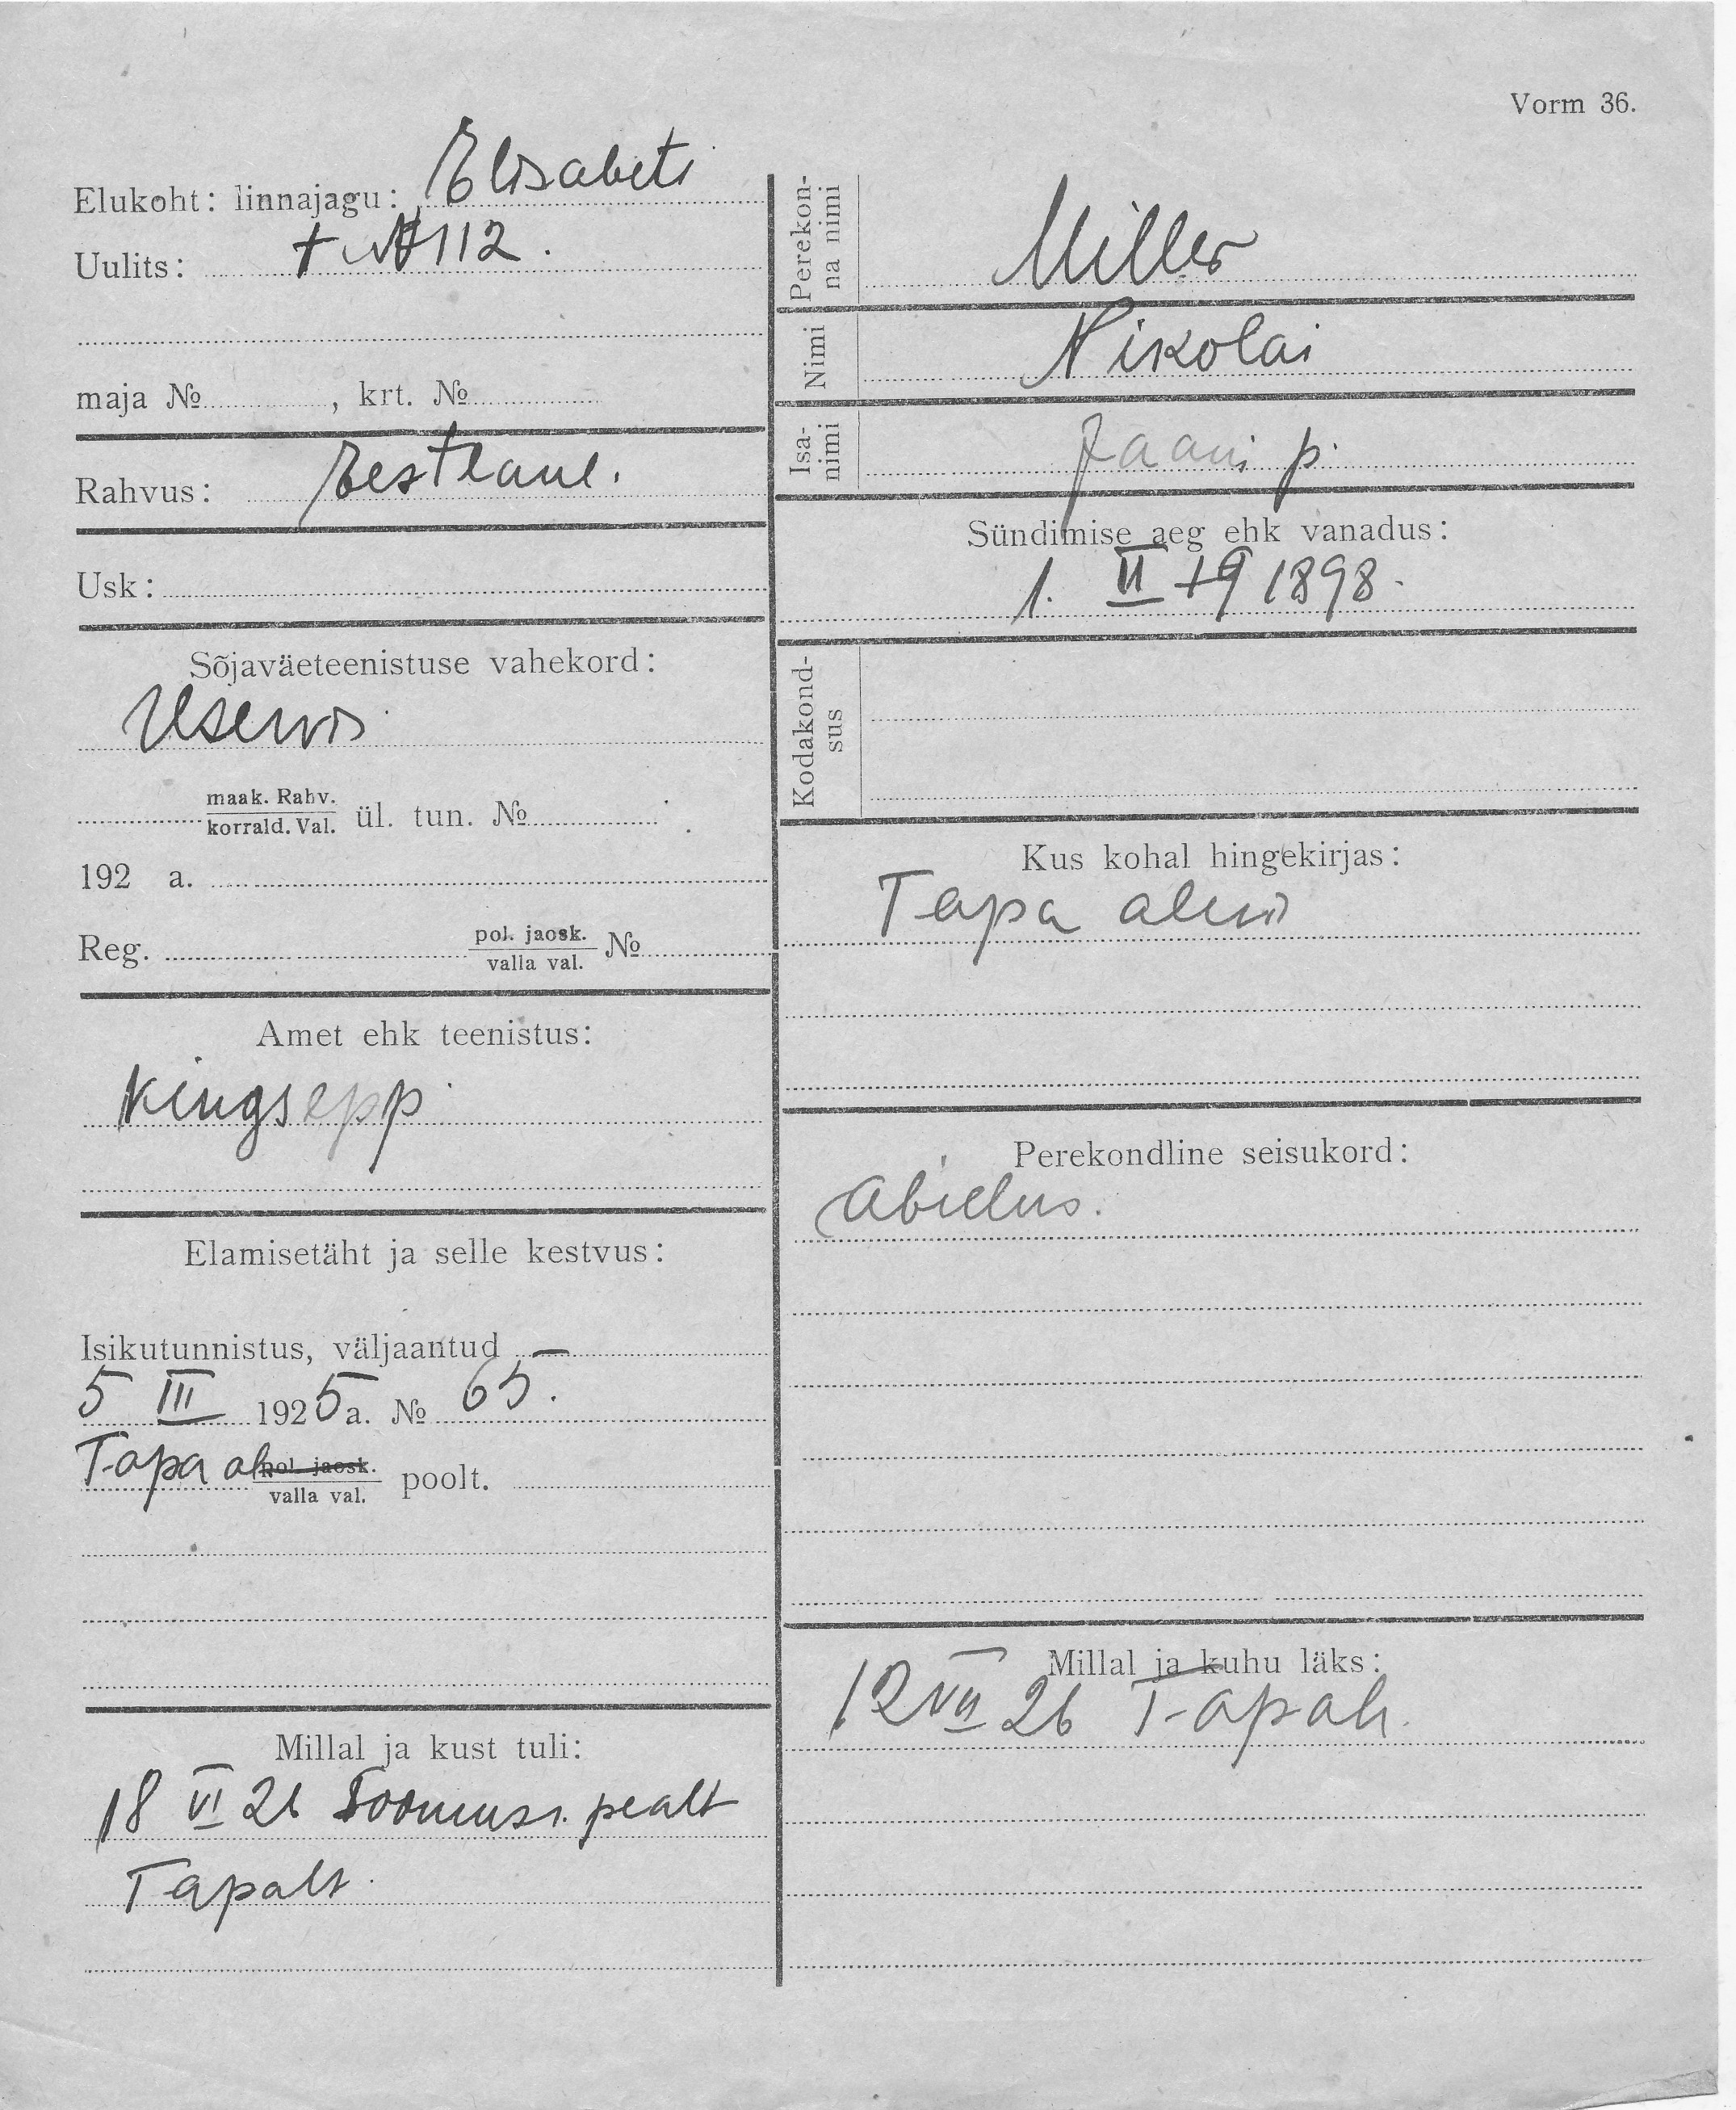 Vorm 36.
Elukoht: linnajagu: Elisabeti
Uulits: t № 112.
maja № , krt. №
Rahvus: Eestlane.
Usk:
Sõjaväeteenistuse vahekord:
maak. Rahv.
korrald. Val. ül. tun. №
192 a.
Reg. pol. jaosk.
valla val. №
Amet ehk teenistus:
Kingsepp.
Elamisetäht ja selle kestvus:
Isikutunnistus, väljaantud —
5 III 1925 a. № 65.
Tapa al. pol. jaosk.
valla val. poolt.
Millal ja kust tuli:
18 VI 26 pealt
Tapalt.
Perekon-
na nimi
Miller
Nimi
Nikolai
Isa-
nimi
Jaani p.
Sündimise aeg ehk vanadus:
1. II 1898.
Kodakond-
sus
Kus kohal hingekirjas:
Tapa alevis
Perekondline seisukord:
abielus.
Millal ja kuhu läks:
12 VII 26 Tapale.